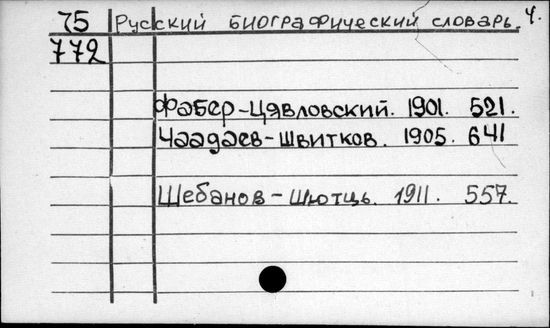 75 Русский биографический словарь. 4.
772
Фабер-Цявловский. 1901. 521.
Чаадаев-Швитков. 1905. 641
Щебанов-Шютць. 1911. 557.